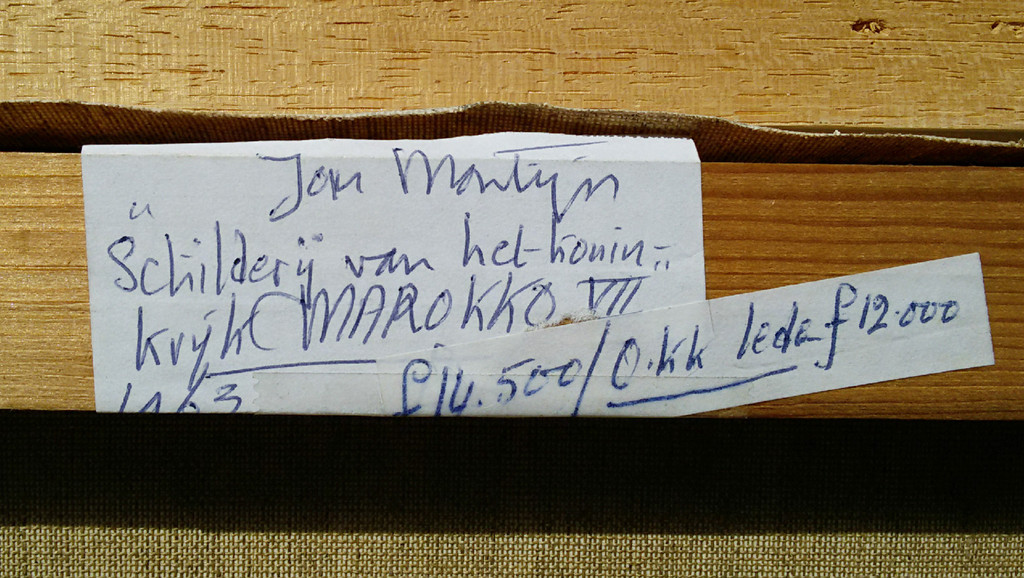 Jan Montijn
"Schilderij van het konin-"
krijk MAROKKO VII
1963
ƒ14.500/ O.KK leden ƒ12.000